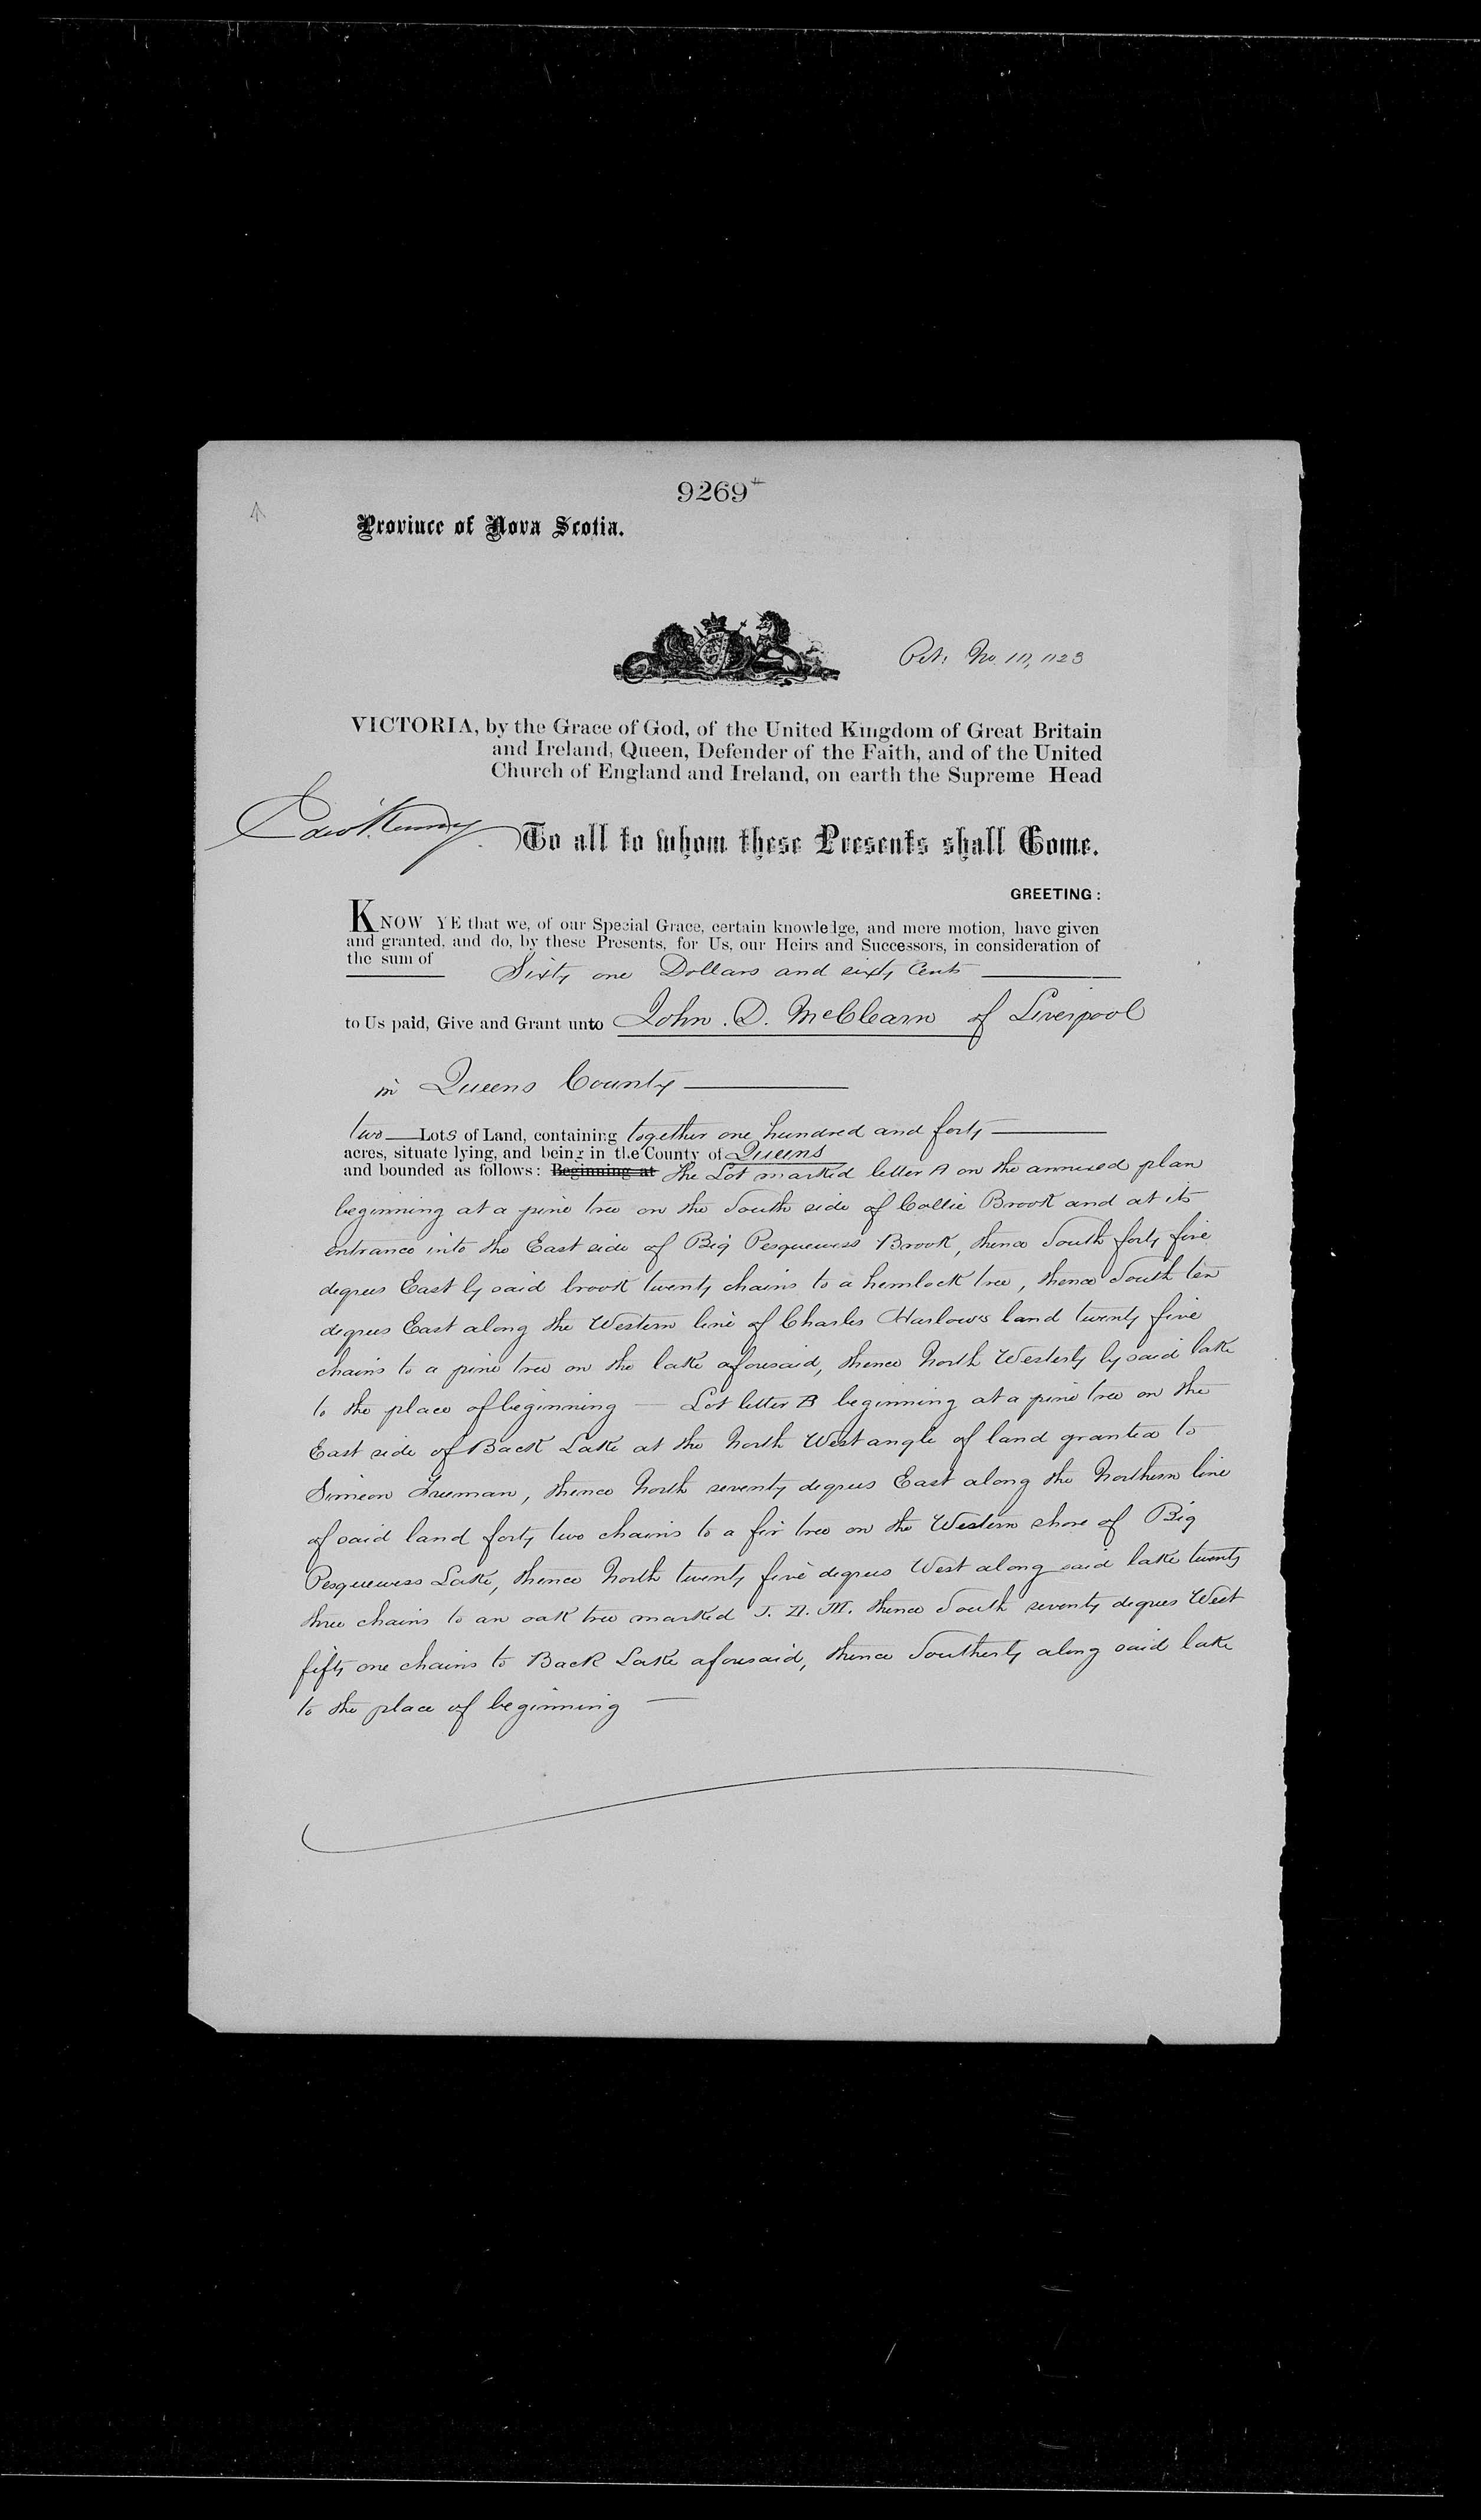 9269
Province of Nova Scotia.
Pet: No.
VICTORIA, by the Grace of God, of the United Kingdom of Great Britain
and Ireland, Queen, Defender of the Faith, and of the United
Church of England and Ireland, on earth the Supreme Head
Edwd Kenny
To all to whom these Presents shall Come.
GREETING:
KNOW YE that we, of our Special Grace, certain knowledge, and mere motion, have given
and granted, and do, by these Presents, for Us, our Heirs and Successors, in consideration of
the sum of Sixty one Dollars and sixty Cents
to Us paid, Give and Grant unto John. D. McClearn of Liverpool
in Queens County
two Lots of Land, containing together one hundred and forty
acres, situate lying, and being in the County of Queens
and bounded as follows: Beginning at the Lot marked letter A on the annexed plan
beginning at a pine tree on the South side of Collie Brook and at its
entrance into the East side of Big Pesquewess Brook, thence South forty five
degrees East by said brook twenty chains to a hemlock tree, thence South ten
degrees East along the Western line of Charles Harlows land twenty five
chains to a pine tree on the lake aforesaid, thence North Westerly by said lake
to the place of beginning — Lot letter B beginning at a pine tree on the
East side of Back Lake at the North West angle of land granted to
Simeon Freeman, thence North seventy degrees East along the Northern line
of said land forty two chains to a fir tree on the Western shore of Big
Pesquewess Lake, thence North twenty five degrees West along said lake twenty
three chains to an oak tree marked J. D. M. thence South seventy degrees West
fifty one chains to Back Lake aforesaid, thence Southerly along said lake
to the place of beginning —